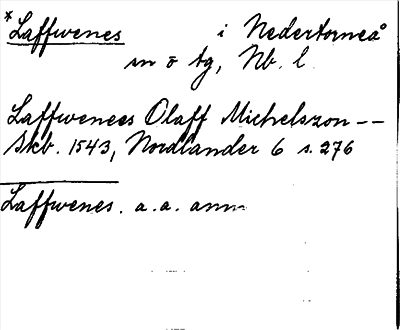 *Laffwenes i Nedertorneå
sn o tg, Nb. l.
Laffwenees Olaff Michelszon --
Skb. 1543, Nordlander 6 s. 276
Laffwenes. a.a. anm